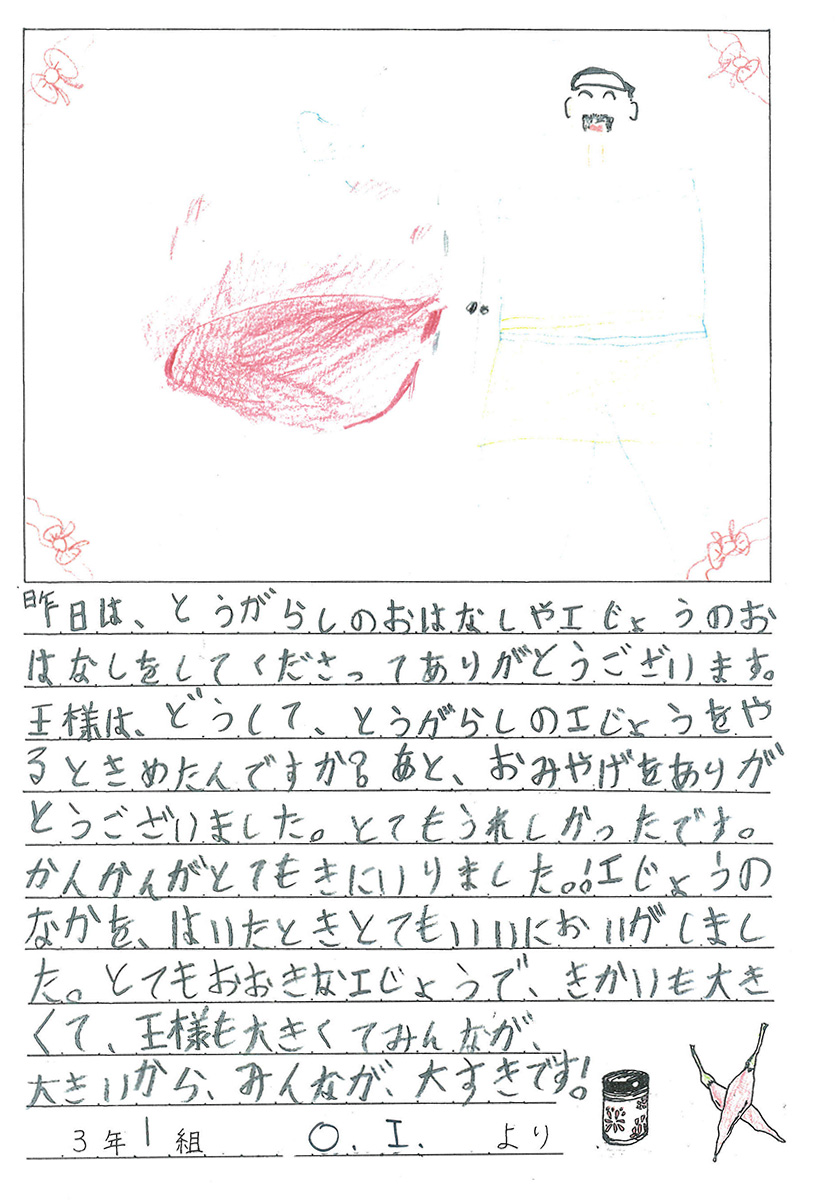 昨日は、とうがらしのおはなしや工じょうのお
はなしをしてくださってありがとうございます。
王様は、どうして、とうがらしの工じょうをや
るときめたんですか?あと、おみやげをありが
とうございました。とてもうれしかったです。
かんかんがとてもきにいりました。!工じょうの
なかを、はいたときとてもいいにおいがしまし
た。とてもおおきな工じょうで、きかいも大き
くて、王様も大きくてみんなが、
大きいから、みんなが、大すきです!
3年1組 O.I. より